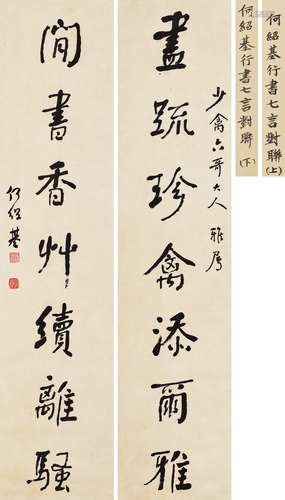 何紹基行書七言對聯(上)
何紹基行書七言對聯(下)
少禽六哥大人 雅屬
盡疏珍禽添爾雅
閒書香艸續離騷
何紹基